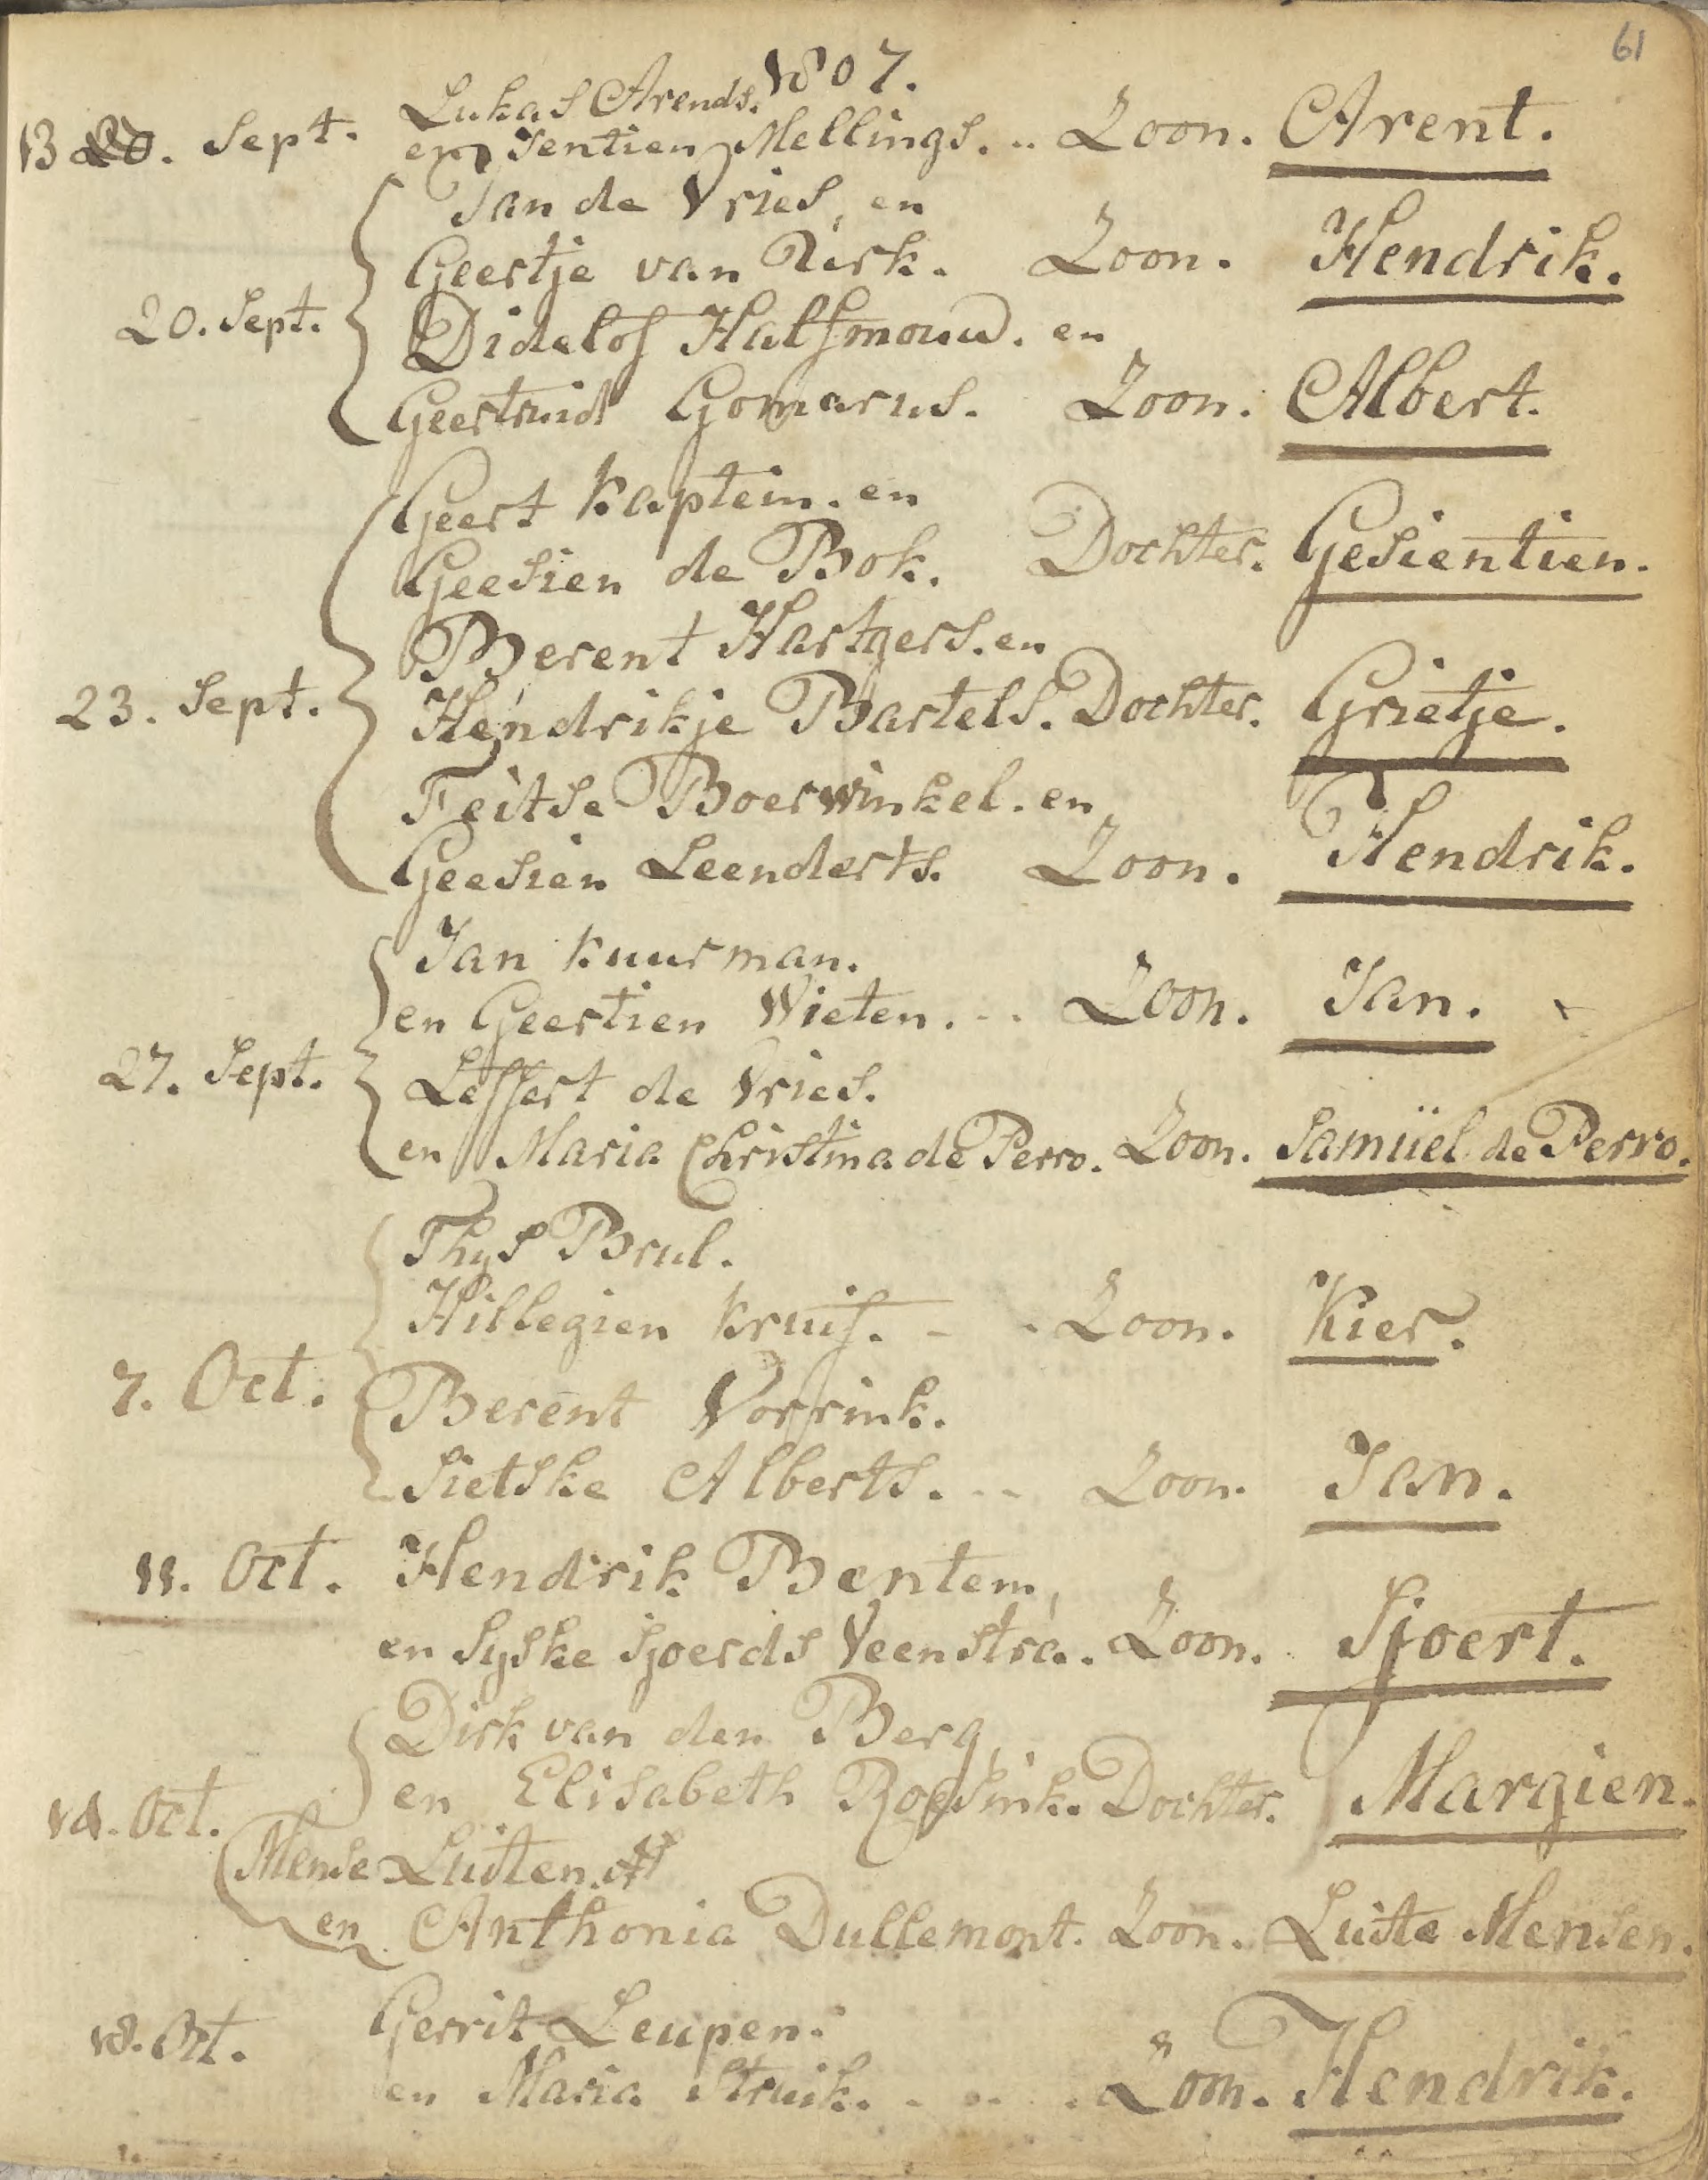 61
1807.
Lukas Arends.
13 20. Sept. en Jentien Mellings. .. Zoon. Arent.
Jan de Vries, en
Geertje van Dirk. Zoon. Hendrik.
20. Sept.
Didelof Halfmouw. en
Geertruid Gomarus. Zoon. Albert.
Geert Kaptein. en
Geesien de Bok. Dochter. Gesientien.
Berent Hartgers. en
23. Sept. Hendrikje Bartels. Dochter. Grietje.
Feitse Boerwinkel. en
Geesien Leenderts. Zoon. Hendrik.
Jan Kuurman.
en Geertien Wieten. .. Zoon. Jan.
27. Sept. Leffert de Vries.
en Maria Christina de Perro. Zoon. Samüel de Perro.
Thys Brul.
Hillegien Kruis. - . Zoon. Kier.
7. Oct. Berent Vorrink.
Sietske Alberts. .. Zoon. Jan.
11. Oct. Hendrik Bentem,
en Syske Sjoerds Veenstra. Zoon. Sjoert.
Dirk van den Berg,
en Elisabeth Roesink. Dochter. Margien.
14. Oct.
Mense Luiten.
en Anthonia Dullemont. Zoon. Luite Mensen.
18. Oct. Gerrit Leupen.
en Maria Struik. . .. . Zoon. Hendrik.